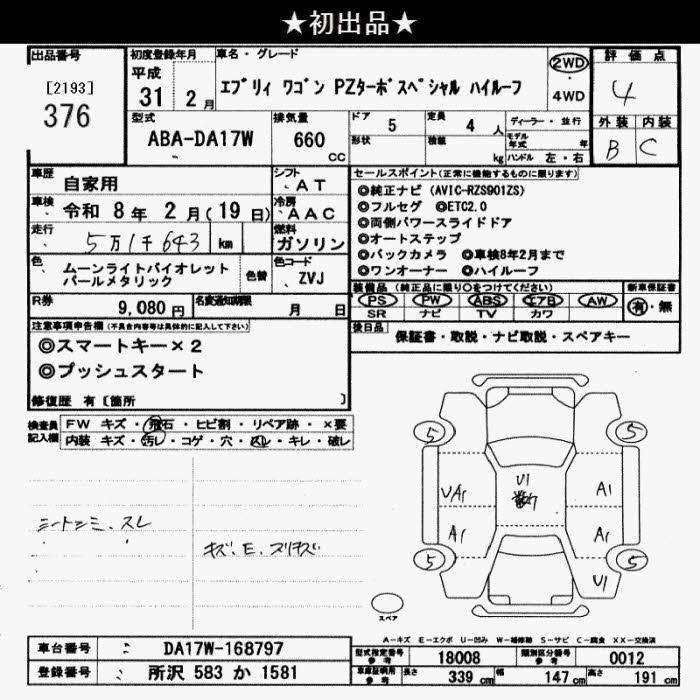 ★初出品★
出品番号 初度登録年月 車名・グレード 2WD 評価点
[2193] 平成
376 31 2月 エブリィ ワゴン PZターボスペシャル ハイルーフ 4WD 4
型式 排気量 ドア 5 定員 4人 ディーラー・並行 外装 内装
ABA-DA17W 660 CC 形状 積載 kg モデル年式 年 B C
ハンドル 左・右
車歴 自家用 シフト AT セールスポイント(正常に機能するものに限ります)
車検 令和 8年 2月(19日) 冷房 AAC ◎純正ナビ (AVIC-RZS901ZS)
◎フルセグ ◎ETC2.0
走行 5万1千643 km 燃料 ガソリン ◎両側パワースライドドア
◎オートステップ
色 ムーンライトバイオレット 色替 色コード ◎バックカメラ ◎車検8年2月まで
パールメタリック ZVJ ◎ワンオーナー ◎ハイルーフ
R券 9,080円 名変通知期限 月 日 装備品 (純正品に限り○をつけてください) 新車保証書
PS PW ABS エアB AW 有・無
SR ナビ TV カワ
注意事項申告欄(不具合内容等は具体的に記入して下さい) 後日品 保証書・取説・ナビ取説・スペアキー
◎スマートキー×2
◎プッシュスタート
修復歴 有〔箇所 〕
検査員記入欄 FW キズ・飛石・ヒビ割・リペア跡・×要
内装 キズ・汚レ・コゲ・穴・スレ・キレ・破レ
5 5
U1
UA1 A1
シートシミ、スレ A1 A1
キズ、E、スリキズ
5 5
U1
スペア
A-キズ E-エクボ U-凹み W-補修跡 S-サビ C-腐食 XX-交換済
車台番号 DA17W-168797 型式指定番号 参考 18008 類別区分番号 参考 0012
登録番号 所沢 583 か 1581 車庫証明用 参考 長さ 339 cm 幅 147 cm 高さ 191 cm